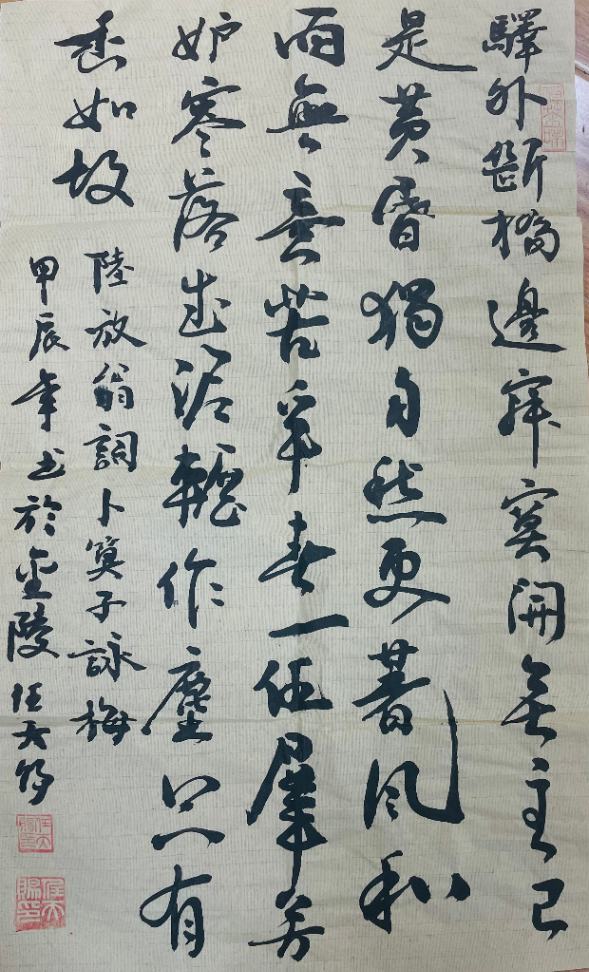 驛外斷橋邊寂寞開無主已
是黄昏獨自愁更著風和
雨無意苦争春一任羣芳
妒零落成泥輾作塵只有
香如故
陸放翁詞卜算子詠梅
甲辰年書於金陵任天賜